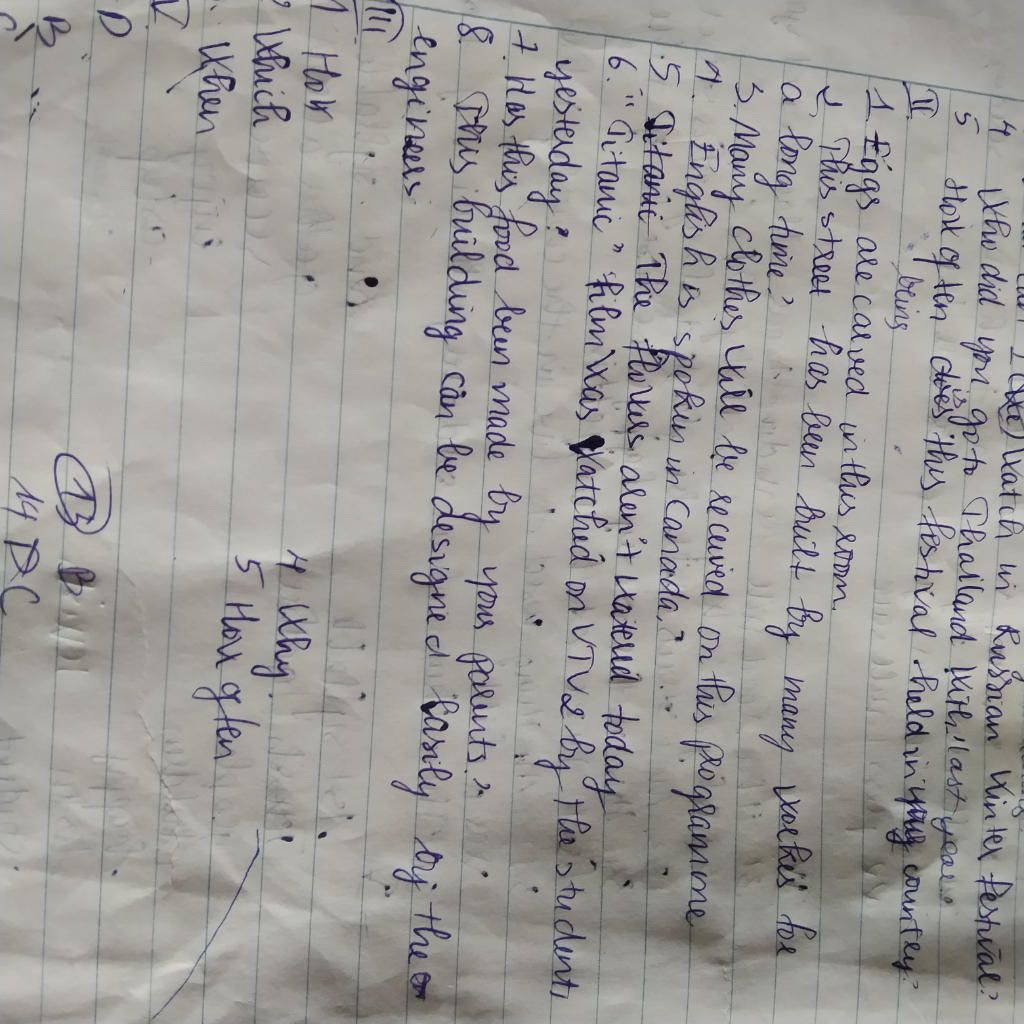 I watch in Russian Winter festival?
4 Who did you go to Thailand with, last year.
5 How often does is this festival held in your country?
II being
1 Eggs are carved in this room.
2 This street has been built by many workes for
a long time?
3. Many clothes will be received on this programme
4. English is spoken in Canada?
5 The flowers aren't watered today
6. "Titanic" film was watched on VTV2 by the student,
yesterday?
7. Has this food been made by your parents?
8. This building can be designed easily by the
engineers
III
1 How
2 Which
When
4 Why
5 How often
V
D
B
C
13 B
14 D C